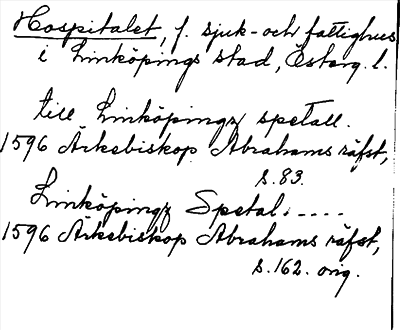 Hospitalet, f. sjuk- och fattighus
i Linköpings stad, Österg. l.
till Linköpingz spetall.
1596 Ärkebiskop Abrahams räfst,
s. 83.
Linköpingz Spetal: ----
1596 Ärkebiskop Abrahams räfst,
s. 162. orig.